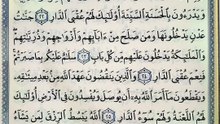 وَيَدْرَءُونَ بِالْحَسَنَةِ السَّيِّئَةَ أُولَٰئِكَ لَهُمْ عُقْبَى الدَّارِ ٢٢ جَنَّاتُ
عَدْنٍ يَدْخُلُونَهَا وَمَن صَلَحَ مِنْ ءَابَائِهِمْ وَأَزْوَاجِهِمْ وَذُرِّيَّاتِهِمْ
وَالْمَلَائِكَةُ يَدْخُلُونَ عَلَيْهِم مِّن كُلِّ بَابٍ ٢٣ سَلَامٌ عَلَيْكُم بِمَا صَبَرْتُمْ
فَنِعْمَ عُقْبَى الدَّارِ ٢٤ وَالَّذِينَ يَنقُضُونَ عَهْدَ اللَّهِ مِن بَعْدِ مِيثَاقِهِ
وَيَقْطَعُونَ مَا أَمَرَ اللَّهُ بِهِ أَن يُوصَلَ وَيُفْسِدُونَ فِي الْأَرْضِ أُولَٰئِكَ
لَهُمُ اللَّعْنَةُ وَلَهُمْ سُوءُ الدَّارِ ٢٥ اللَّهُ يَبْسُطُ الرِّزْقَ لِمَن يَشَاءُ